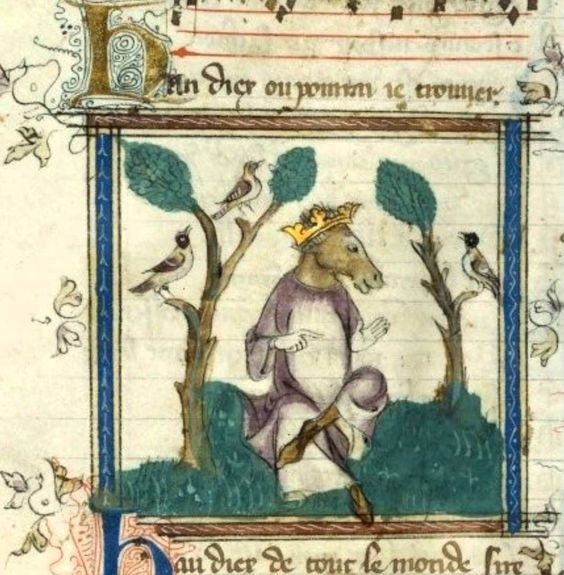 Han diex ou pourrai ie trouuer
hau diex de tout le monde sire